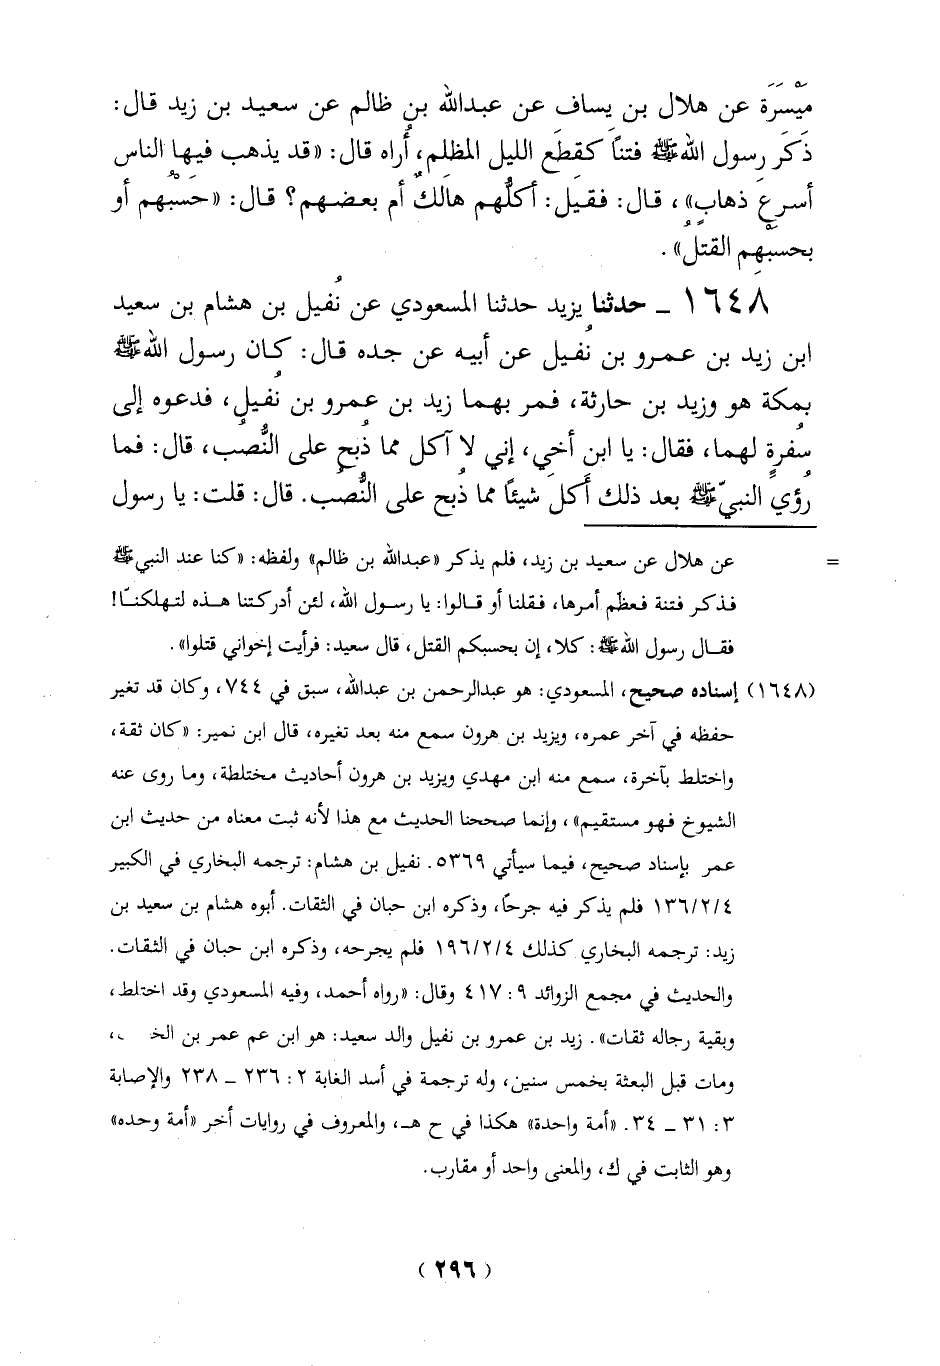 مَيْسَرَة عن هلال بن يساف عن عبدالله بن ظالم عن سعيد بن زيد قال:
ذَكَرَ رسول الله ﷺ فتناً كَقِطَع الليل المظلم، أُراه قال: «قد يذهب فيها الناس
أسرعَ ذهابٍ»، قال: فقيل: أكلُّهم هالكٌ أم بعضهم؟ قال: «حَسْبُهم أو
بحسبِهم القتلُ».
١٦٤٨ ــ حدثنا يزيد حدثنا المسعودي عن نُفيل بن هشام بن سعيد
ابن زيد بن عمرو بن نُفيل عن أبيه عن جده قال: كان رسول الله ﷺ
بمكة هو وزيد بن حارثة، فمر بهما زيد بن عمرو بن نُفيل، فدعوه إلى
سُفرةٍ لهما، فقال: يا ابن أخي، إني لا آكل مما ذُبح على النُّصب، قال: فما
رُؤي النبيّ ﷺ بعد ذلك أَكَلَ شيئاً مما ذُبح على النُّصب. قال: قلت: يا رسول
= عن هلال عن سعيد بن زيد، فلم يذكر «عبدالله بن ظالم» ولفظه: «كنا عند النبي ﷺ
فذكر فتنة فعظّم أمرها، فقلنا أو قالوا: يا رسول الله، لئن أدركتنا هذه لتهلكنا!
فقال رسول الله ﷺ: كلا، إن بحسبكم القتل، قال سعيد: فرأيت إخواني قتلوا».
(١٦٤٨) إسناده صحيح، المسعودي: هو عبدالرحمن بن عبدالله، سبق في ٧٤٤، وكان قد تغير
حفظه في آخر عمره، ويزيد بن هرون سمع منه بعد تغيره، قال ابن نمير: «كان ثقة،
واختلط بآخرة، سمع منه ابن مهدي ويزيد بن هرون أحاديث مختلطة، وما روى عنه
الشيوخ فهو مستقيم»، وإنما صححنا الحديث مع هذا لأنه ثبت معناه من حديث ابن
عمر بإسناد صحيح، فيما سيأتي ٥٣٦٩. نفيل بن هشام: ترجمه البخاري في الكبير
١٣٦/٢/٤ فلم يذكر فيه جرحاً، وذكره ابن حبان في الثقات. أبوه هشام بن سعيد بن
زيد: ترجمه البخاري كذلك ١٩٦/٢/٤ فلم يجرحه، وذكره ابن حبان في الثقات.
والحديث في مجمع الزوائد ٩: ٤١٧ وقال: «رواه أحمد، وفيه المسعودي وقد اختلط،
وبقية رجاله ثقات». زيد بن عمرو بن نفيل والد سعيد: هو ابن عم عمر بن الخـ ـ،
ومات قبل البعثة بخمس سنين، وله ترجمة في أسد الغابة ٢: ٢٣٦ ــ ٢٣٨ والإصابة
٣: ٣١ ــ ٣٤. «أمة واحدة» هكذا في ح هـ، والمعروف في روايات أخر «أمة وحده»
وهو الثابت في ك، والمعنى واحد أو مقارب.
(٢٩٦)